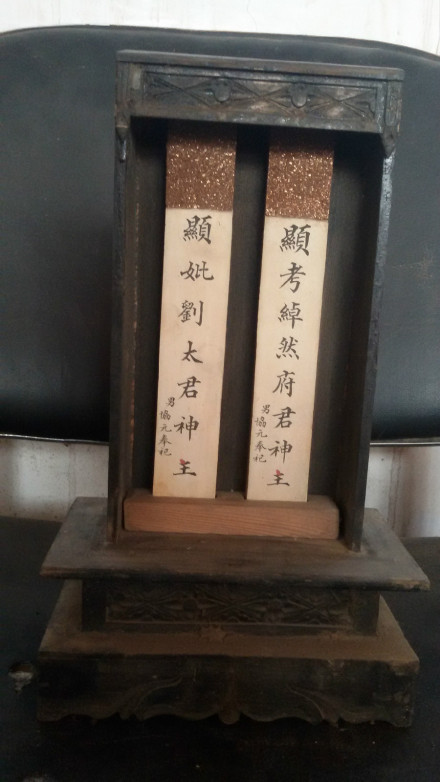 顯考綽然府君神主
男協元奉祀
顯妣劉太君神主
男協元奉祀